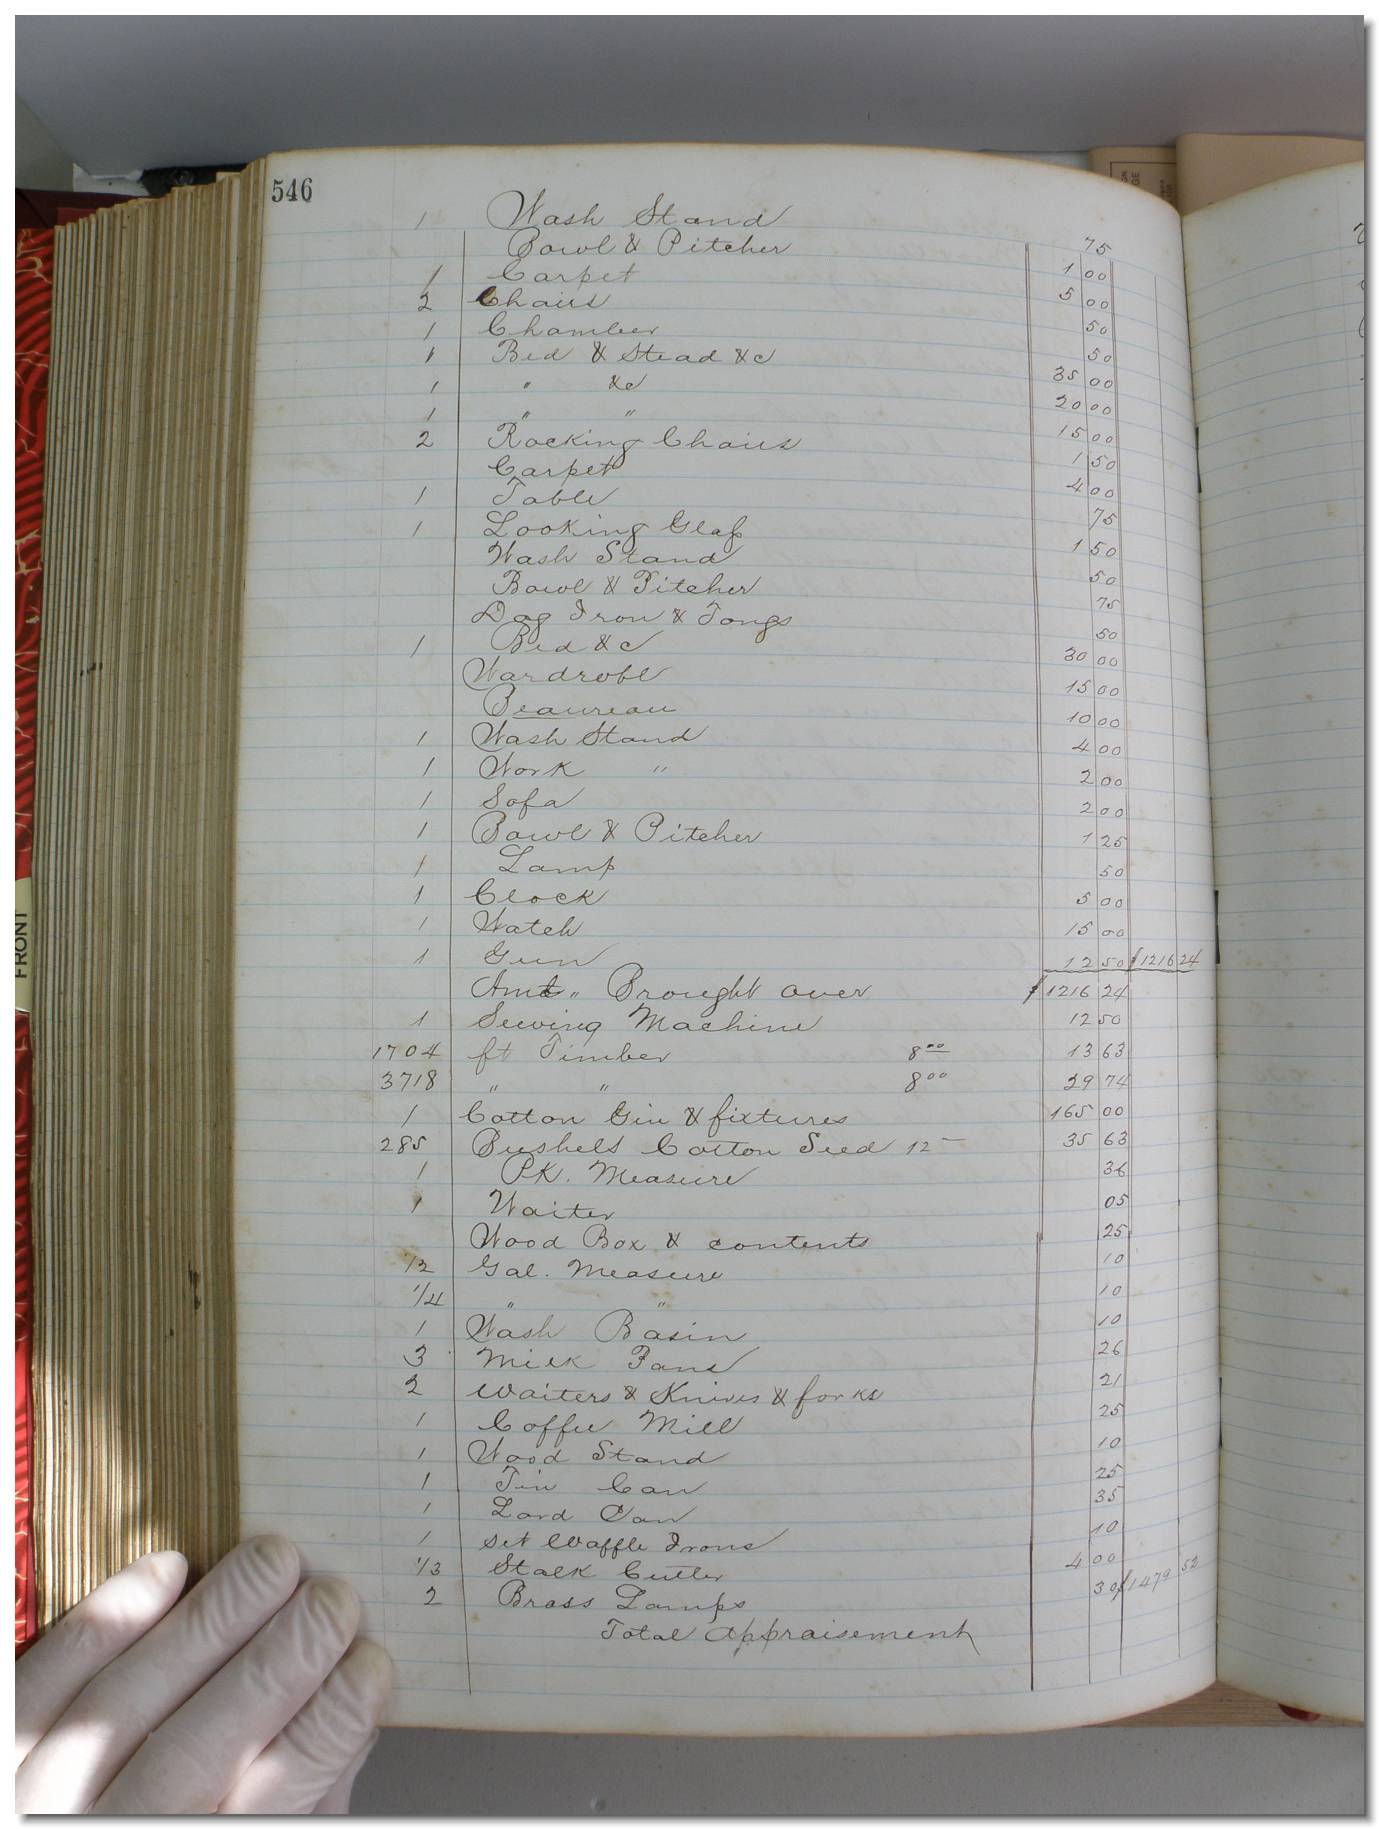 546
1 Wash Stand 75
Bowl & Pitcher 1 00
1 Carpet 5 00
2 Chairs 50
1 Chamber 50
1 Bed & Stead &c 35 00
1 " &c 20 00
1 " " 15 00
2 Rocking Chairs 1 50
Carpet 4 00
1 Table 75
1 Looking Glaſs 1 50
Wash Stand 50
Bowl & Pitcher 75
Dog Iron & Tongs 50
1 Bed &c 30 00
Wardrobe 15 00
Beaureau 10 00
1 Wash Stand 4 00
1 Work " 2 00
1 Sofa 2 00
1 Bowl & Pitcher 1 25
1 Lamp 50
1 Clock 5 00
1 Watch 15 00
1 Gun 12 50 $1216 24
Amt " Brought over $1216 24
1 Sewing Machine 12 50
1704 ft Timber 8 00 13 63
3718 " " 8 00 29 74
1 Cotton Gin & fixtures 165 00
285 Bushels Cotton Seed 12 - 35 63
1 PK. Measure 36
1 Waiter 05
Wood Box & contents 25
1/2 Gal. Measure 10
1/4 " " 10
1 Wash Basin 10
3 Milk Pans 26
2 Waiters & Knives & forks 21
1 Coffee Mill 25
1 Wood Stand 10
1 Tin Can 25
1 Lard Can 35
1 set Waffle Irons 10
1/3 Stalk Cutter 4 00
2 Brass Lamps 30 $1479 52
Total Appraisement
FRONT